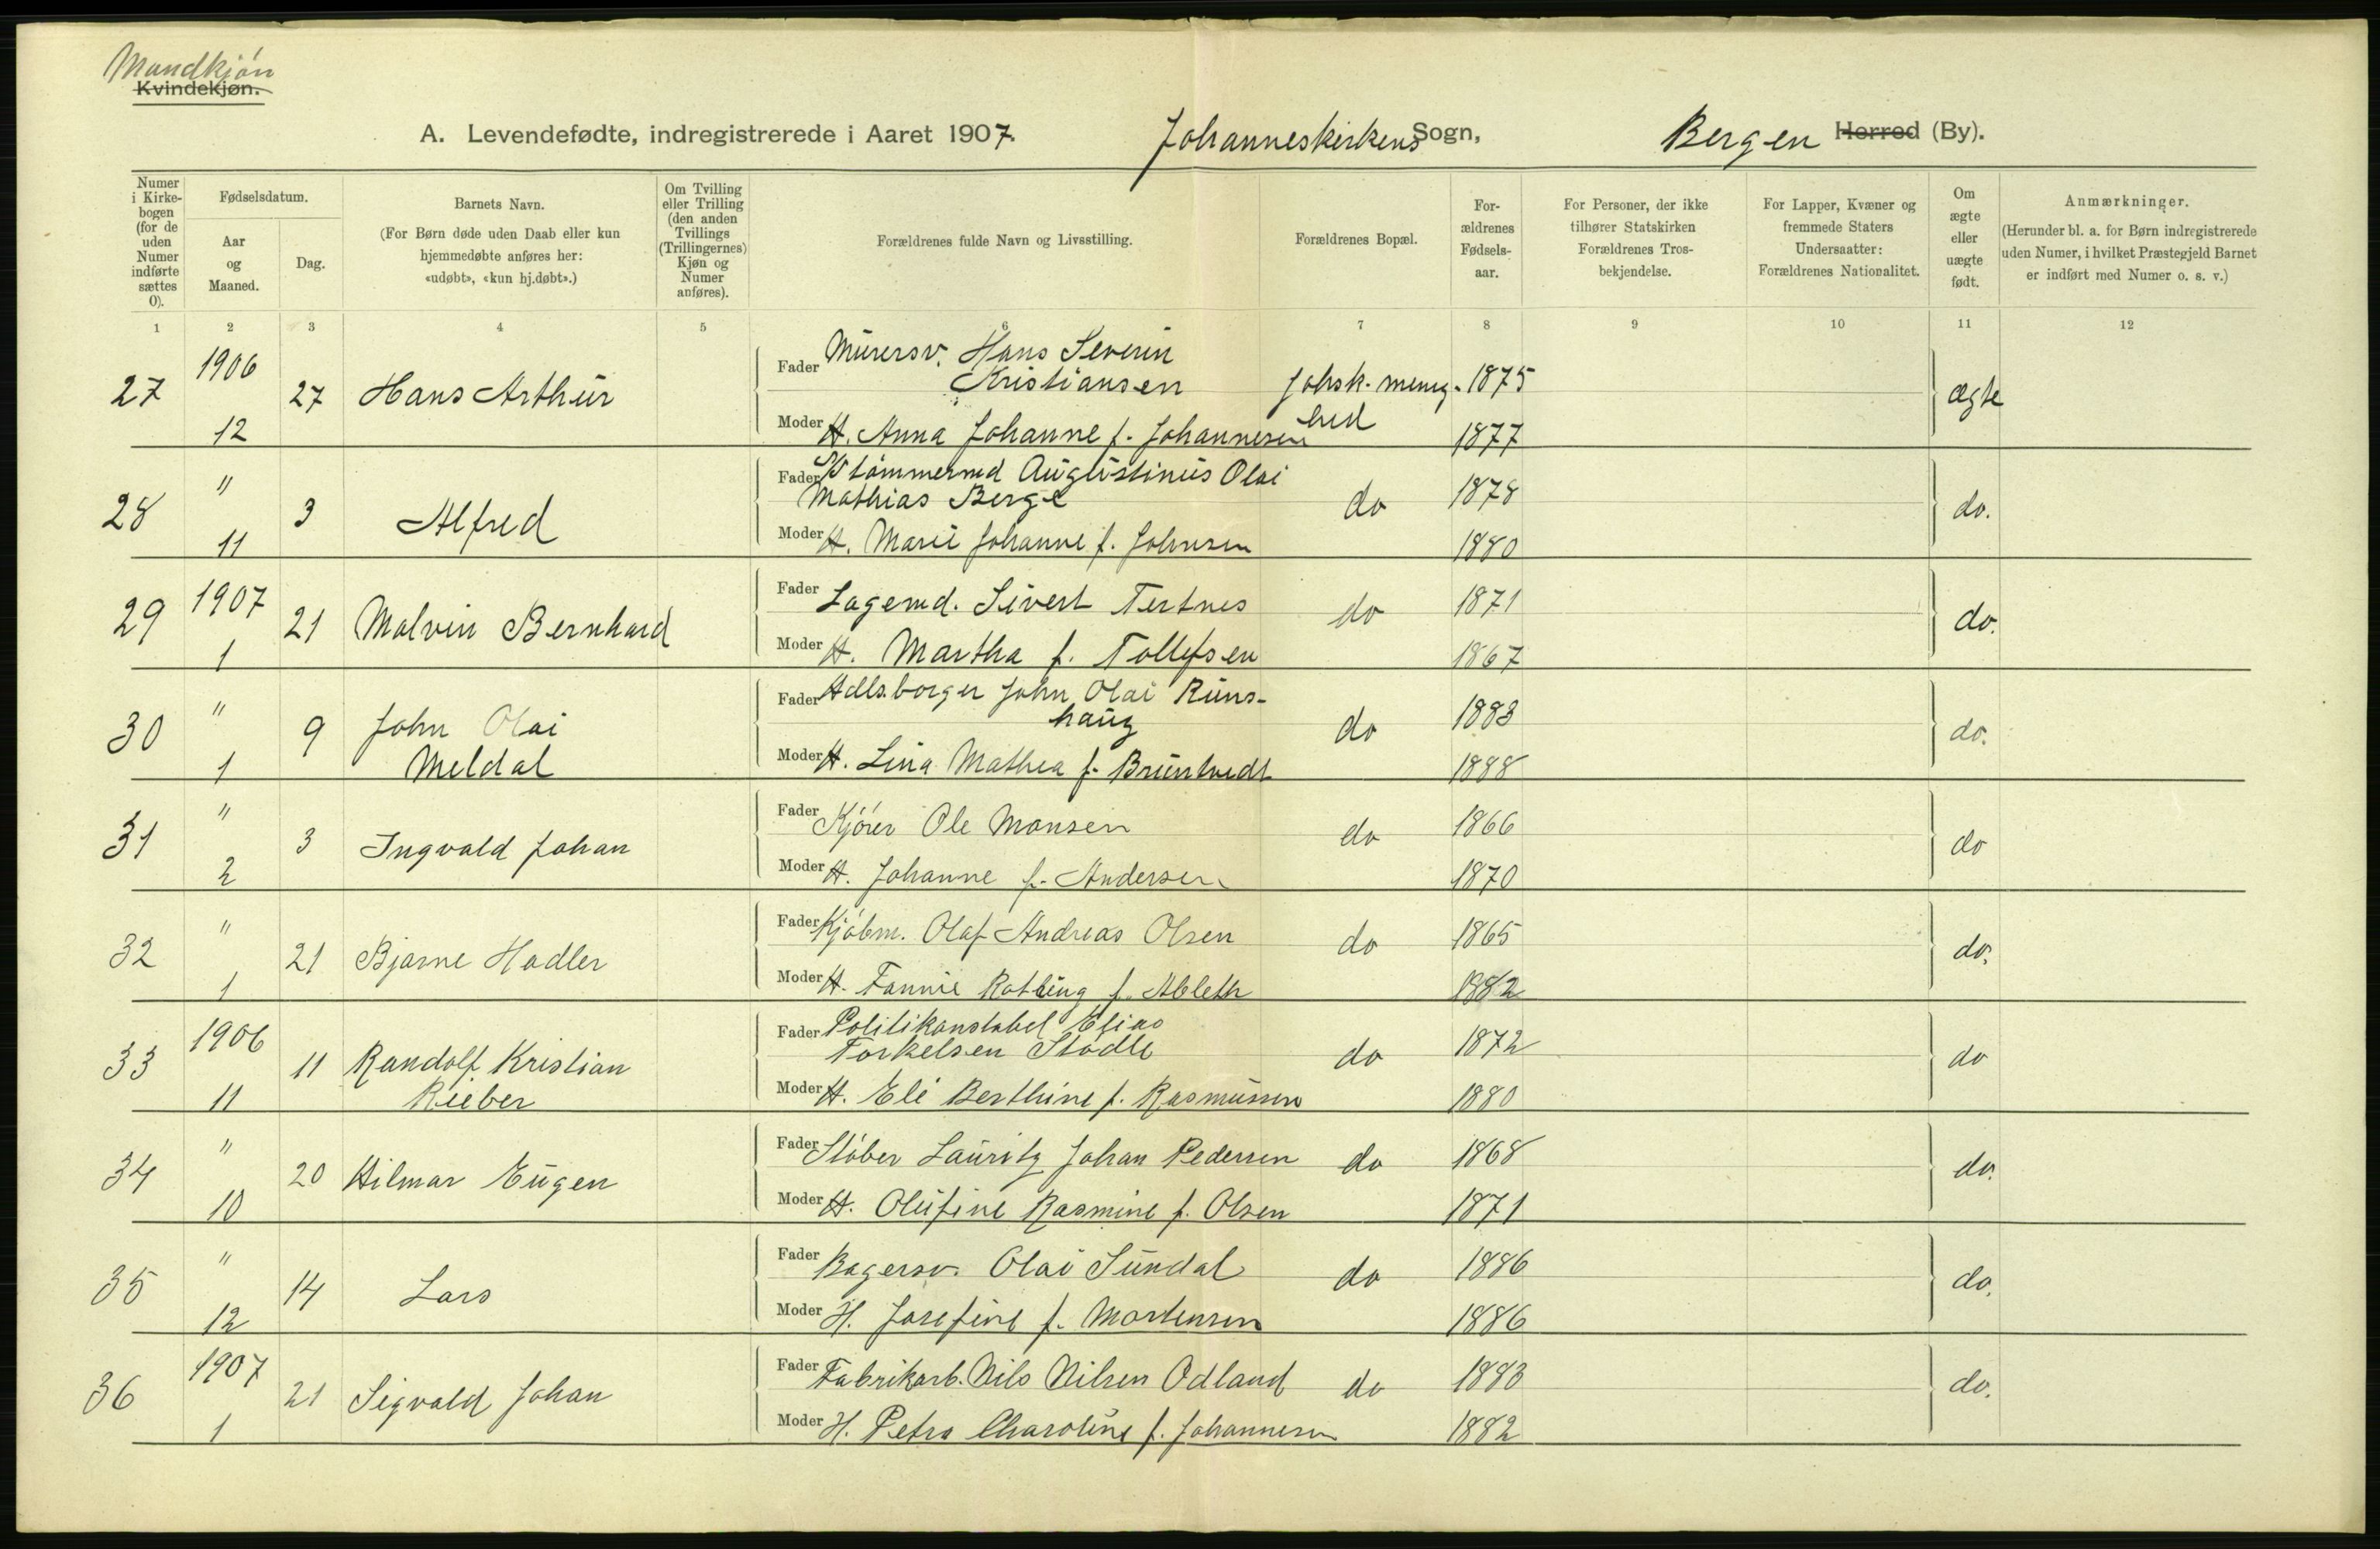 Mandkjøn
Kvindekjøn.
A. Levendefødte, indregistrerede i Aaret 1907. Johanneskirkens Sogn, Bergen Herred (By).
Numer i Kirkebogen (for de uden Numer indførte sættes 0).
Fødselsdatum.
Aar og Maaned.
Dag.
Barnets Navn.
(For Børn døde uden Daab eller kun hjemmedøbte anføres her: «udøbt», «kun hj.døbt».)
Om Tvilling eller Trilling (den anden Tvillings (Trillingernes) Kjøn og Numer anføres).
Forældrenes fulde Navn og Livsstilling.
Forældrenes Bopæl.
Forældrenes Fødselsaar.
For Personer, der ikke tilhører Statskirken Forældrenes Trosbekjendelse.
For Lapper, Kvæner og fremmede Staters Undersaatter: Forældrenes Nationalitet.
Om ægte eller uægte født.
Anmærkninger.
(Herunder bl. a. for Børn indregistrerede uden Numer, i hvilket Præstegjeld Barnet er indført med Numer o. s. v.)
1 2 3 4 5 6 7 8 9 10 11 12
27 1906 12 27 Hans Arthur
Fader Murersv. Hans Severin Kristiansen Johsk. menig- 1875 ægte
Moder H. Anna Johanne f. Johannesen hed 1877
28 " 11 3 Alfred
Fader Tømmermd Augustinus Olai
Mathias Berge do 1878 do.
Moder H. Marie Johanne f. Johnsen 1880
29 1907 1 21 Malvin Bernhard
Fader Lagermd. Sivert Tertnes do 1871 do.
Moder H. Martha f. Tollefsen 1867
30 " 1 9 John Olai Meldal
Fader Hdlsborger John Olai Runshaug do 1883 do.
Moder H. Lina Mathea f. Bruntvedt 1888
31 " 2 3 Ingvald Johan
Fader Kjører Ole Monsen do 1866 do
Moder H. Johanne f. Andersen 1870
32 " 1 21 Bjarne Hadler
Fader Kjøbm. Olaf Andreas Olsen do 1865 do.
Moder H. Fannie f. Ableth 1882
33 1906 11 11 Randolf Kristian Rieber
Fader Politikonstabel Elias
Torkelsen Stødle do 1872 do
Moder H. Eli Berthine f. Rasmussen 1880
34 " 10 20 Hilmar Eugen
Fader Støber Lauritz Johan Pedersen do 1868 do.
Moder H. Olufine Rasmine f. Olsen 1871
35 " 12 14 Lars
Fader Bagersv. Olai Sundal do 1886 do.
Moder H. Josefine f. Mortensen 1886
36 1907 1 21 Sigvald Johan
Fader Fabrikarb. Nils Nilsen Odland do 1883 do.
Moder H. Petra Charoline f. Johannesen 1882